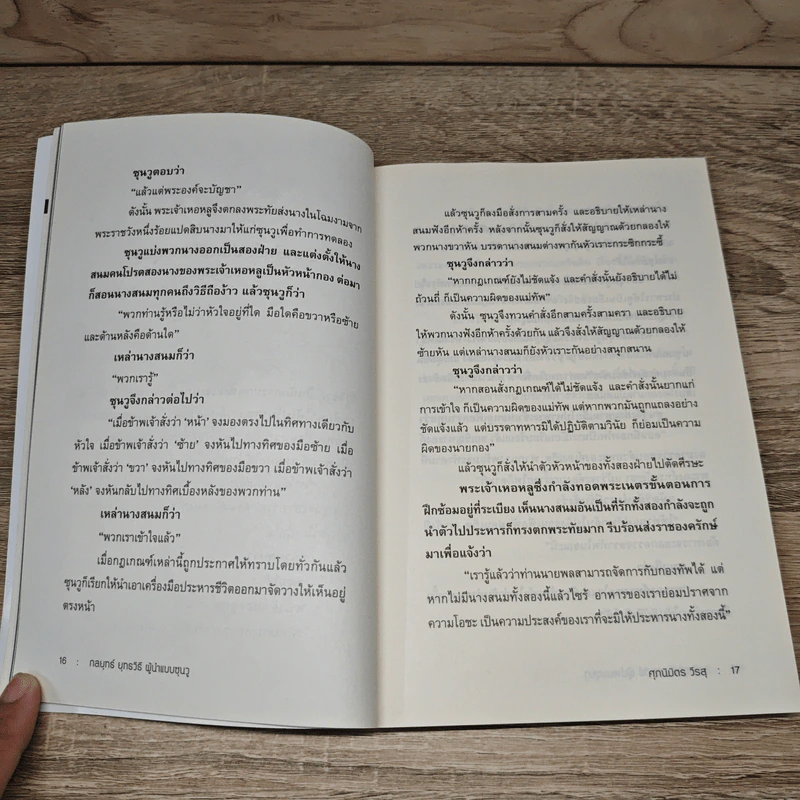 ซุนวูตอบว่า
“แล้วแต่พระองค์จะบัญชา”
ดังนั้น พระเจ้าเหอหลูจึงตกลงพระทัยส่งนางในโฉมงามจาก
พระราชวังหนึ่งร้อยแปดสิบนางมาให้แก่ซุนวูเพื่อทำการทดลอง
ซุนวูแบ่งพวกนางออกเป็นสองฝ่าย และแต่งตั้งให้นาง
สนมคนโปรดสองนางของพระเจ้าเหอหลูเป็นหัวหน้ากอง ต่อมา
ก็สอนนางสนมทุกคนถึงวิธีถือง้าว แล้วซุนวูก็ว่า
“พวกท่านรู้หรือไม่ว่าหัวใจอยู่ที่ใด มือใดคือขวาหรือซ้าย
และด้านหลังคือด้านใด”
เหล่านางสนมก็ว่า
“พวกเรารู้”
ซุนวูจึงกล่าวต่อไปว่า
“เมื่อข้าพเจ้าสั่งว่า ‘หน้า’ จงมองตรงไปในทิศทางเดียวกับ
หัวใจ เมื่อข้าพเจ้าสั่งว่า ‘ซ้าย’ จงหันไปทางทิศของมือซ้าย เมื่อ
ข้าพเจ้าสั่งว่า ‘ขวา’ จงหันไปทางทิศของมือขวา เมื่อข้าพเจ้าสั่งว่า
‘หลัง’ จงหันกลับไปทางทิศเบื้องหลังของพวกท่าน”
เหล่านางสนมก็ว่า
“พวกเราเข้าใจแล้ว”
เมื่อกฎเกณฑ์เหล่านี้ถูกประกาศให้ทราบโดยทั่วกันแล้ว
ซุนวูก็เรียกให้นำเอาเครื่องมือประหารชีวิตออกมาจัดวางให้เห็นอยู่
ตรงหน้า
16 : กลยุทธ์ ยุทธวิธี ผู้นำแบบซุนวู
แล้วซุนวูก็ลงมือสั่งการสามครั้ง และอธิบายให้เหล่านาง
สนมฟังอีกห้าครั้ง หลังจากนั้นซุนวูก็สั่งให้สัญญาณด้วยกลองให้
พวกนางขวาหัน บรรดานางสนมต่างพากันหัวเราะกระซิกกระซี้
ซุนวูจึงกล่าวว่า
“หากกฎเกณฑ์ยังไม่ชัดแจ้ง และคำสั่งนั้นยังอธิบายได้ไม่
ถ้วนถี่ ก็เป็นความผิดของแม่ทัพ”
ดังนั้น ซุนวูจึงทวนคำสั่งอีกสามครั้งสามครา และอธิบาย
ให้พวกนางฟังอีกห้าครั้งด้วยกัน แล้วจึงสั่งให้สัญญาณด้วยกลองให้
ซ้ายหัน แต่เหล่านางสนมก็ยังหัวเราะกันอย่างสนุกสนาน
ซุนวูจึงกล่าวว่า
“หากสอนสั่งกฎเกณฑ์ได้ไม่ชัดแจ้ง และคำสั่งนั้นยากแก่
การเข้าใจ ก็เป็นความผิดของแม่ทัพ แต่หากพวกมันถูกแถลงอย่าง
ชัดแจ้งแล้ว แต่บรรดาทหารมิได้ปฏิบัติตามวินัย ก็ย่อมเป็นความ
ผิดของนายกอง”
แล้วซุนวูก็สั่งให้นำตัวหัวหน้าของทั้งสองฝ่ายไปตัดศีรษะ
พระเจ้าเหอหลูซึ่งกำลังทอดพระเนตรขั้นตอนการ
ฝึกซ้อมอยู่ที่ระเบียง เห็นนางสนมอันเป็นที่รักทั้งสองกำลังจะถูก
นำตัวไปประหารก็ทรงตกพระทัยมาก รีบร้อนส่งราชองครักษ์
มาเพื่อแจ้งว่า
“เรารู้แล้วว่าท่านนายพลสามารถจัดการกับกองทัพได้ แต่
หากไม่มีนางสนมทั้งสองนี้แล้วไซร้ อาหารของเราย่อมปราศจาก
ความโอชะ เป็นความประสงค์ของเราที่จะมิให้ประหารนางทั้งสองนี้”
ศุภนิมิตร วีรสุ : 17